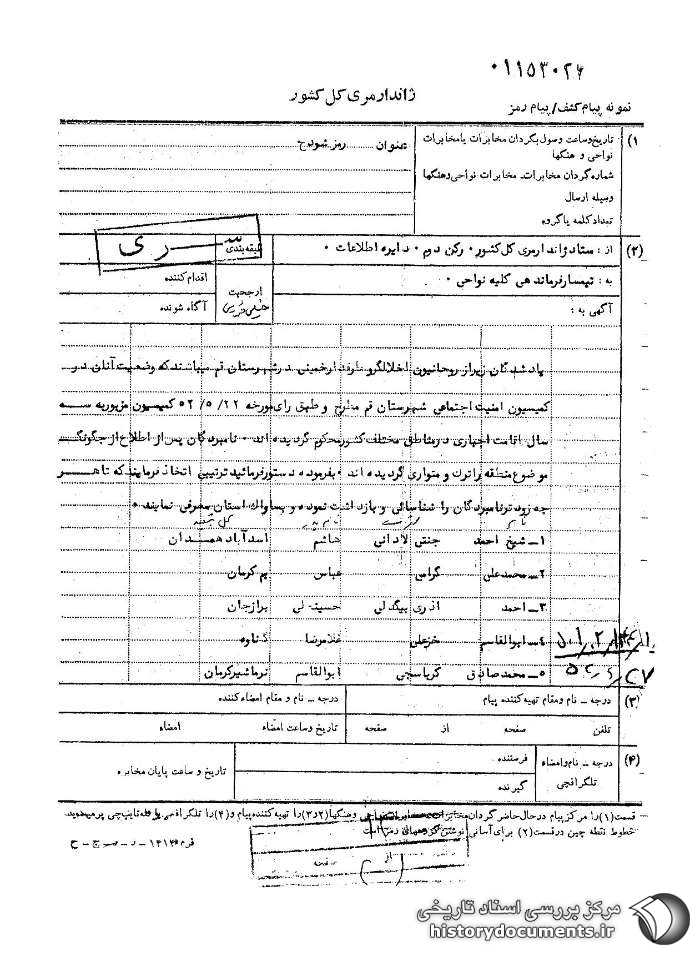 ۰۱۱۵۳۰۲۶
ژاندارمری کل کشور
نمونه پیام کشف/پیام رمز
۱) تاریخ وساعت وصول بگردان مخابرات یامخابرات نواحی و هنگها
شماره گردان مخابرات. مخابرات نواحی وهنگها
وسیله ارسال
تعداد کلمه یاگروه
عنوان رمز شود ج
(۲) از : ستاد ژاندارمری کل کشور۰ رکن دوم ۰ دایره اطلاعات ۰
طبقه بندی سری
به : تیمسار فرماند هی کلیه نواحی ۰
ارجحیت
اقدام کننده
آگهی به :
آگاه شونده
یاد شدگان زیر از روحانیون اخلالگر و طرفدار خمینی د رشهرستان قم میباشند که وضعیت آنان د ر
کمیسیون امنیت اجتماعی شهرستان قم مطرح و طبق رای مورخه ۵۲/۵/۲۲ کمیسیون مزبور به سه
سال اقامت اجباری د رمناطق مختلف کشور محکوم گردید ه اند ۰ نامبردگان پس از اطلاع از چگونگی
موضوع منطقه را ترک و متواری گردید ه اند ۰ بفرموده د ستور فرمائید ترتیبی اتخاذ فرمایند که تا هر
چه زود تر نامبردگان را شناسائی و بازد اشت نموده و بساواک استان معرفی نمایند ۰
۱ـ شیخ احمد جنتی لادانی هاشم اسدآباد همدان
۲ـ محمدعلی گرامی عباس بم کرمان
۳ـ احمد آذری بیگدلی حسینعلی برازجان
۴ـ ابوالقاسم خزعلی غلامرضا گناوه
۵ـ محمدصادق کرباسچی ابوالقاسم نرماشیر کرمان
(۳) درجه ـ نام ومقام تهیه کننده پیام
درجه ـ نام و مقام امضاء کننده
تلفن صفحه از صفحه
تاریخ وساعت امضاء امضاء
(۴) درجه ـ نام وامضاء تلگرافچی
فرستنده
گیرنده
تاریخ و ساعت پایان مخابره
قسمت(۱) را مرکز پیام درحال حاضر گردان مخابرات وهنگها(۲و۳) را تهیه کننده پیام و(۴) را تلگرافچی پرمیدهد
خطوط نقطه چین درقسمت (۲) برای آسانی نوشتن گروههای رمز است
فرم ۱۴۱۳ ـ د ـ ص ج ـ ح
از
صفحه
مرکز بررسی اسناد تاریخی
historydocuments.ir